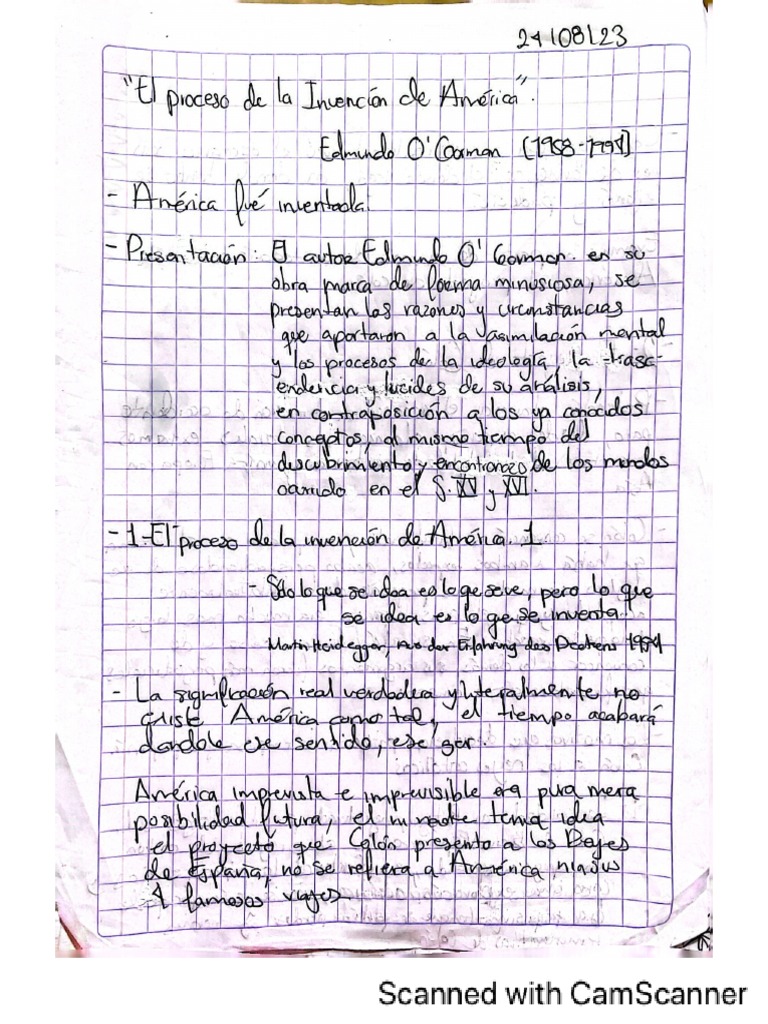 24/08/23
"El proceso de la Invención de América".
Edmundo O'Gorman
- América fué inventada.
- Presentación: El autor Edmundo O'Gorman en su
obra marca de forma minusiosa, se
presentan las razones y circunstancias
que aportaron a la asimilación mental
y los procesos de la ideología, la trasc-
endencia y lucides de su análisis,
en contraposición a los ya conocidos
conceptos, al mismo tiempo del
descubrimiento y encontronazo de los mundos
ocurrido en el S. XV y XVI.
- 1.- El proceso de la invención de América. 1
- Sólo lo que se idea es lo que se ve, pero lo que
se idea es lo que se inventa.
Martin Heidegger, Aus der Erfahrung des Denkens 1954
- La significación real verdadera y literalmente no
existe América como tal, el tiempo acabará
dandole ese sentido, ese ser.
América imprevista e imprevisible era pura mera
posibilidad futura, el ni nadie tenia idea
el proyecto que Colón presento a los Reyes
de España, no se refiera a América ni a sus
4 famosos viajes
Scanned with CamScanner